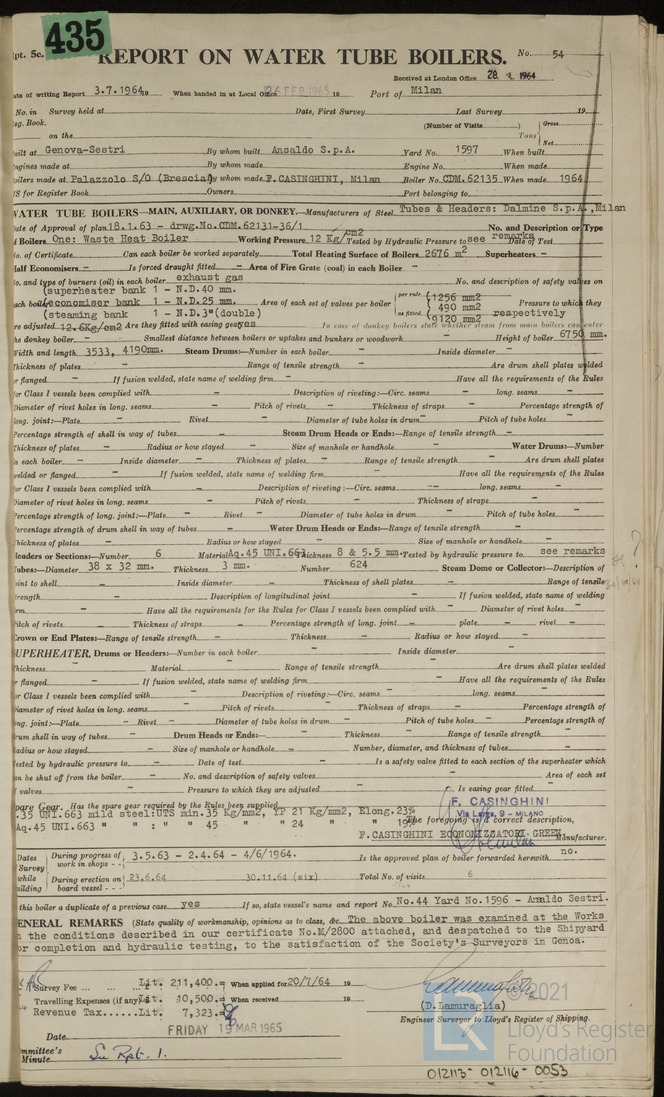 435
Rpt. 5c.
REPORT ON WATER TUBE BOILERS.
No. 54
Received at London Office 28 1964
Date of writing Report 3.7.1964 19 When handed in at Local Office 16 FEB 1965 19 Port of Milan
No. in Survey held at Date, First Survey Last Survey 19
Reg. Book. (Number of Visits ) Gross
on the Tons Net
Built at Genova-Sestri By whom built Ansaldo S.p.A. Yard No. 1597 When built
Engines made at By whom made Engine No. When made
Boilers made at Palazzolo S/O (Brescia) By whom made F.CASINGHINI, Milan Boiler No. CDM.62135 When made 1964
Owners Port belonging to
WATER TUBE BOILERS—MAIN, AUXILIARY, OR DONKEY.—Manufacturers of Steel Tubes & Headers: Dalmine S.p.A.,Milan
Date of Approval of plan 18.1.63 - drwg.No.CDM.62131-36/1 No. and Description or Type
of Boilers One: Waste Heat Boiler Working Pressure 12 Kg/cm2 Tested by Hydraulic Pressure to see remarks Date of Test
No. of Certificate Can each boiler be worked separately Total Heating Surface of Boilers 2676 m2 Superheaters -
Half Economisers - Is forced draught fitted - Area of Fire Grate (coal) in each Boiler -
No. and type of burners (oil) in each boiler exhaust gas No. and description of safety valves on
(superheater bank 1 - N.D.40 mm.
each boiler (economiser bank 1 - N.D.25 mm. Area of each set of valves per boiler per rule as fitted (1256 mm2 490 mm2 9120 mm2 Pressure to which they respectively
(steaming bank 1 - N.D.3"(double)
are adjusted 12.6Kg/cm2 Are they fitted with easing gear yes In case of donkey boilers state whether steam from main boilers can enter
the donkey boiler - Smallest distance between boilers or uptakes and bunkers or woodwork - Height of boiler 6750 mm.
Width and length 3533, 4190mm. Steam Drums:—Number in each boiler - Inside diameter -
Thickness of plates - Range of tensile strength - Are drum shell plates welded
or flanged - If fusion welded, state name of welding firm - Have all the requirements of the Rules
for Class I vessels been complied with - Description of riveting:—Circ. seams - long. seams -
Diameter of rivet holes in long. seams - Pitch of rivets - Thickness of straps - Percentage strength of
long. joint:—Plate - Rivet - Diameter of tube holes in drum - Pitch of tube holes -
Percentage strength of shell in way of tubes - Steam Drum Heads or Ends:—Range of tensile strength -
Thickness of plates - Radius or how stayed - Size of manhole or handhole - Water Drums:—Number
in each boiler - Inside diameter - Thickness of plates - Range of tensile strength - Are drum shell plates
welded or flanged - If fusion welded, state name of welding firm - Have all the requirements of the Rules
for Class I vessels been complied with - Description of riveting:—Circ. seams - long. seams -
Diameter of rivet holes in long. seams - Pitch of rivets - Thickness of straps -
Percentage strength of long. joint:—Plate - Rivet - Diameter of tube holes in drum - Pitch of tube holes -
Percentage strength of drum shell in way of tubes - Water Drum Heads or Ends:—Range of tensile strength -
Thickness of plates - Radius or how stayed - Size of manhole or handhole -
Headers or Sections:—Number 6 Material Aq.45 UNI.663 Thickness 8 & 5.5 mm. Tested by hydraulic pressure to see remarks
Tubes:—Diameter 38 x 32 mm. Thickness 3 mm. Number 624 Steam Dome or Collector:—Description of
joint to shell - Inside diameter - Thickness of shell plates - Range of tensile
strength - Description of longitudinal joint - If fusion welded, state name of welding
firm - Have all the requirements for the Rules for Class I vessels been complied with - Diameter of rivet holes -
Pitch of rivets - Thickness of straps - Percentage strength of long. joint - plate - rivet -
Crown or End Plates:—Range of tensile strength - Thickness - Radius or how stayed -
SUPERHEATER, Drums or Headers:—Number in each boiler - Inside diameter -
Thickness - Material - Range of tensile strength - Are drum shell plates welded
or flanged - If fusion welded, state name of welding firm - Have all the requirements of the Rules
for Class I vessels been complied with - Description of riveting:—Circ. seams - long. seams -
Diameter of rivet holes in long. seams - Pitch of rivets - Thickness of straps - Percentage strength of
long. joint:—Plate - Rivet - Diameter of tube holes in drum - Pitch of tube holes - Percentage strength of
drum shell in way of tubes - Drum Heads or Ends:— Thickness - Range of tensile strength -
Radius or how stayed - Size of manhole or handhole - Number, diameter, and thickness of tubes -
Tested by hydraulic pressure to - Date of test - Is a safety valve fitted to each section of the superheater which
can be shut off from the boiler - No. and description of safety valves - Area of each set
of valves - Pressure to which they are adjusted - Is easing gear fitted -
Spare Gear. Has the spare gear required by the Rules been supplied F. CASINGHINI
.35 UNI.663 mild steel:UTS min.35 Kg/mm2, YP 21 Kg/mm2, Elong.23% Via Larga, 9 - MILANO
Aq.45 UNI.663 " " : " 45 " " 24 " " 19% The foregoing is a correct description,
F.CASINGHINI ECONOMIZZATORI GREEN Manufacturer.
Dates of Survey while building
During progress of work in shops - - 3.5.63 - 2.4.64 - 4/6/1964. Is the approved plan of boiler forwarded herewith no.
During erection on board vessel - - - 23.6.64 30.11.64 (six) Total No. of visits 6
Is this boiler a duplicate of a previous case yes If so, state vessel's name and report No. No.44 Yard No.1596 - Ansaldo Sestri.
GENERAL REMARKS (State quality of workmanship, opinions as to class, &c. The above boiler was examined at the Works
in the conditions described in our certificate No.M/2800 attached, and despatched to the Shipyard
for completion and hydraulic testing, to the satisfaction of the Society's Surveyors in Genoa.
Survey Fee ... ... Lit. 211,400.= When applied for 20/7/64 19
Travelling Expenses (if any) Lit. 10,500.= When received 19
Revenue Tax......Lit. 7,323.=
(D.Lamuraglia)
Engineer Surveyor to Lloyd's Register of Shipping.
FRIDAY 19 MAR 1965
Date
Committee's Minute See Rpt. 1.
©2021
Lloyd's Register
Foundation
012113-012116-0053